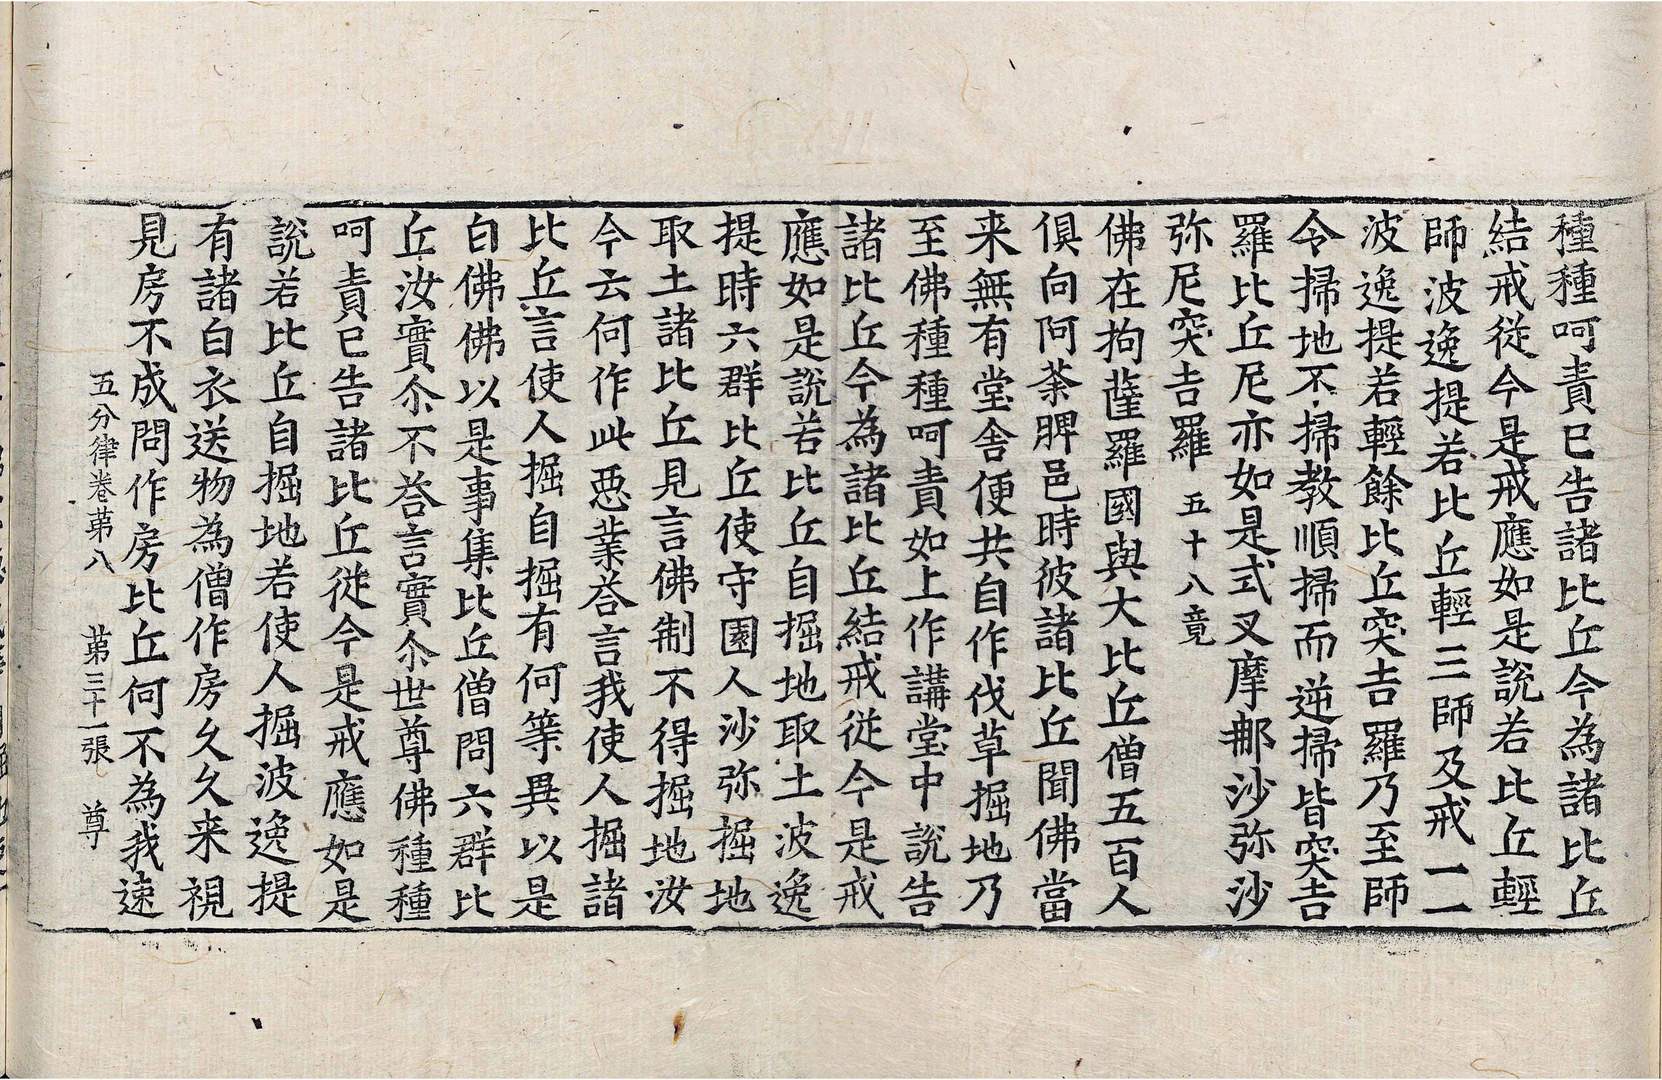 種種呵責已告諸比丘今為諸比丘
結戒從今是戒應如是說若比丘輕
師波逸提若比丘輕三師及戒一一
波逸提若輕餘比丘突吉羅乃至師
令掃地不掃教順掃而逆掃皆突吉
羅比丘尼亦如是式叉摩那沙弥沙
弥尼突吉羅 五十八竟
佛在拘薩羅國與大比丘僧五百人
俱向阿荼脾邑時彼諸比丘聞佛當
来無有堂舍便共自作伐草掘地乃
至佛種種呵責如上作講堂中說告
諸比丘今為諸比丘結戒從今是戒
應如是說若比丘自掘地取土波逸
提時六群比丘使守園人沙弥掘地
取土諸比丘見言佛制不得掘地汝
今云何作此惡業荅言我使人掘諸
比丘言使人掘自掘有何等異以是
白佛佛以是事集比丘僧問六群比
丘汝實尒不荅言實尒世尊佛種種
呵責已告諸比丘從今是戒應如是
說若比丘自掘地若使人掘波逸提
有諸白衣送物為僧作房久久来視
見房不成問作房比丘何不為我速
五分律卷苐八 苐三十一張 尊